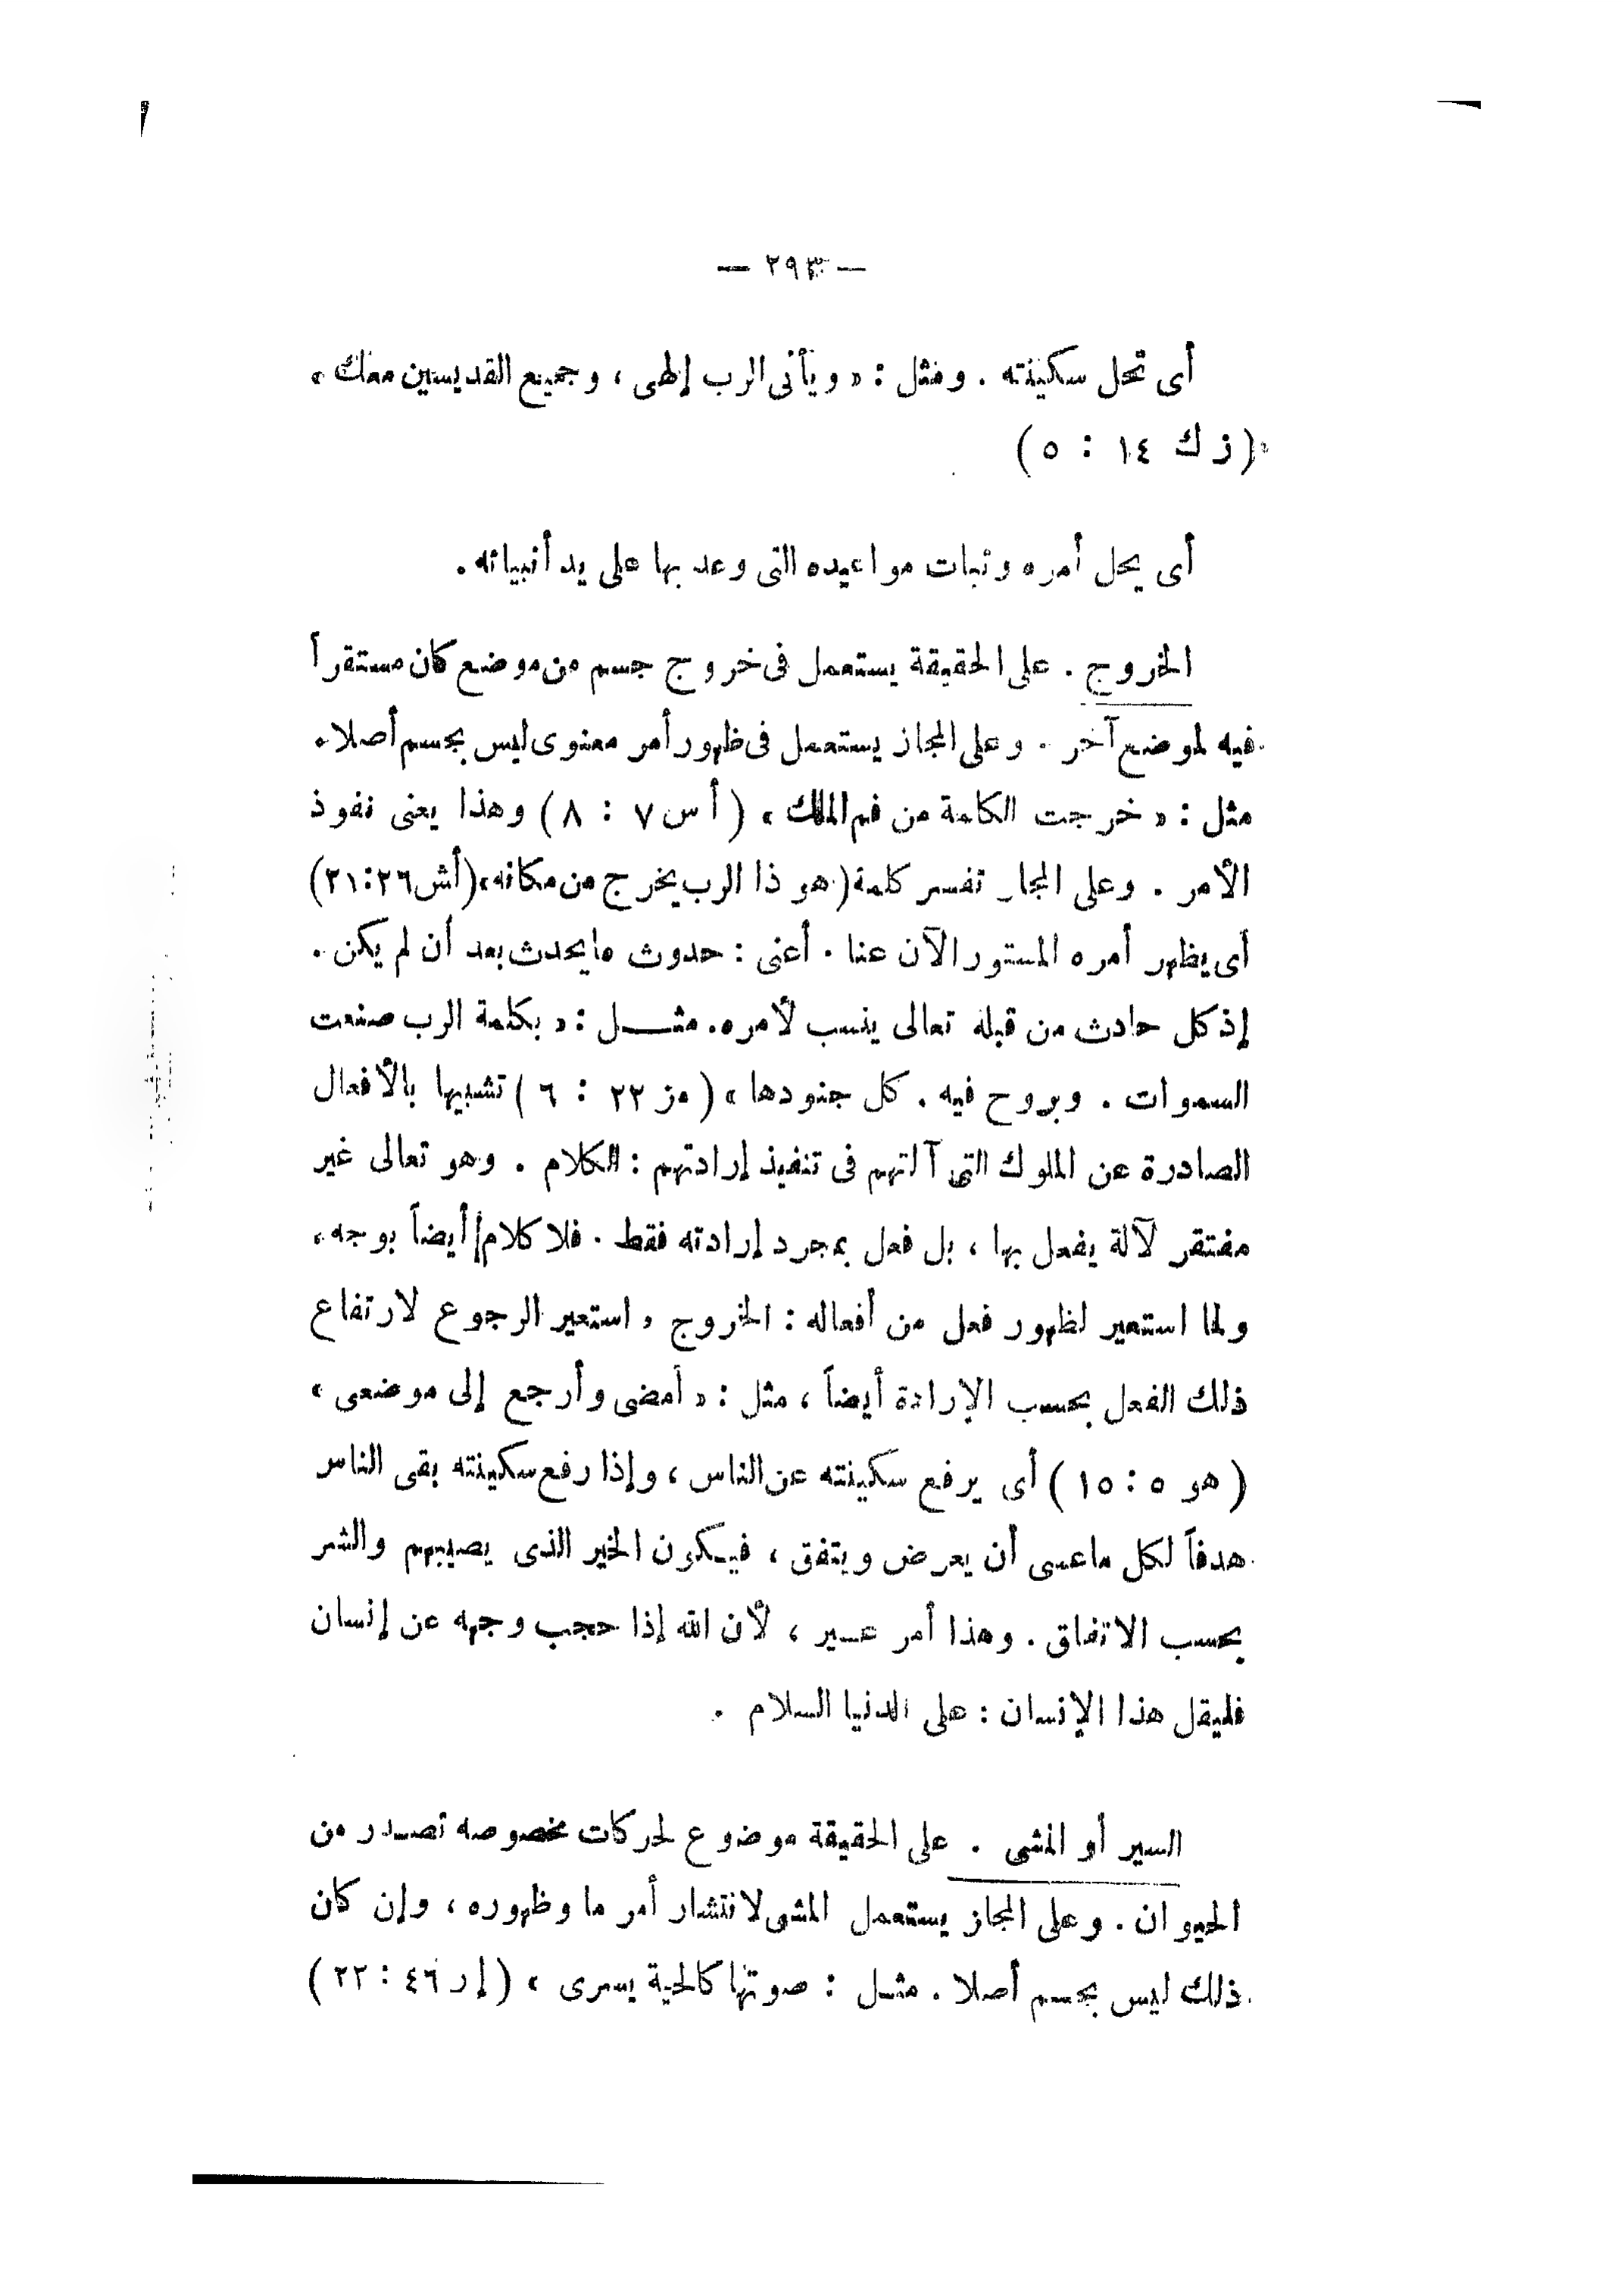 — ٢٩٣ —
أى تحل سكينته . ومثل : « ويأتى الرب إلهى ، وجميع القديسين معك »
(زك ١٤ : ٥)
أى يحل أمره وثبات مواعيده التى وعد بها على يد أنبيائه .
الخروج . على الحقيقة يستعمل فى خروج جسم من موضع كان مستقراً
فيه لموضع آخر . وعلى المجاز يستعمل فى ظهور أمر معنوى ليس بجسم أصلا .
مثل : « خرجت الكلمة من فم الملك » ( أس ٧ : ٨ ) وهذا يعنى نفوذ
الأمر . وعلى المجاز تفسر كلمة ( هو ذا الرب يخرج من مكانه » (أش ٢٦ : ٢١)
أى يظهر أمره المستور الآن عنا . أعنى : حدوث ما يحدث بعد أن لم يكن .
إذ كل حادث من قبله تعالى ينسب لأمره . مثــل : « بكلمة الرب صنعت
السموات . وبروح فيه . كل جنودها » ( مز ٢٢ : ٦ ) تشبيها بالأفعال
الصادرة عن الملوك التى آلتهم فى تنفيذ إرادتهم : الكلام . وهو تعالى غير
مفتقر لآلة يفعل بها ، بل فعل بمجرد إرادته فقط . فلا كلام أيضاً بوجه .
ولما استعير لظهور فعل من أفعاله : الخروج ، استعير الرجوع لارتفاع
ذلك الفعل بحسب الإرادة أيضاً ، مثل : « أمضى وأرجع إلى موضعى »
( هو ٥ : ١٥ ) أى يرفع سكينته عن الناس ، وإذا رفع سكينته بقى الناس
هدفاً لكل ما عسى أن يعرض ويتفق ، فيـكون الخير الذى يصيبهم والشر
بحسب الاتفاق . وهذا أمر عسير ، لأن الله إذا حجب وجهه عن إنسان
فليقل هذا الإنسان : على الدنيا السلام .
السير أو المشى . على الحقيقة موضوع لحركات مخصوصه تصـدر من
الحيوان . وعلى المجاز يستعمل المشى لانتشار أمر ما وظهوره ، وإن كان
ذلك ليس بجسم أصلا . مثـل : صوتها كالحية يسرى » ( إر ٤٦ : ٢٢ )